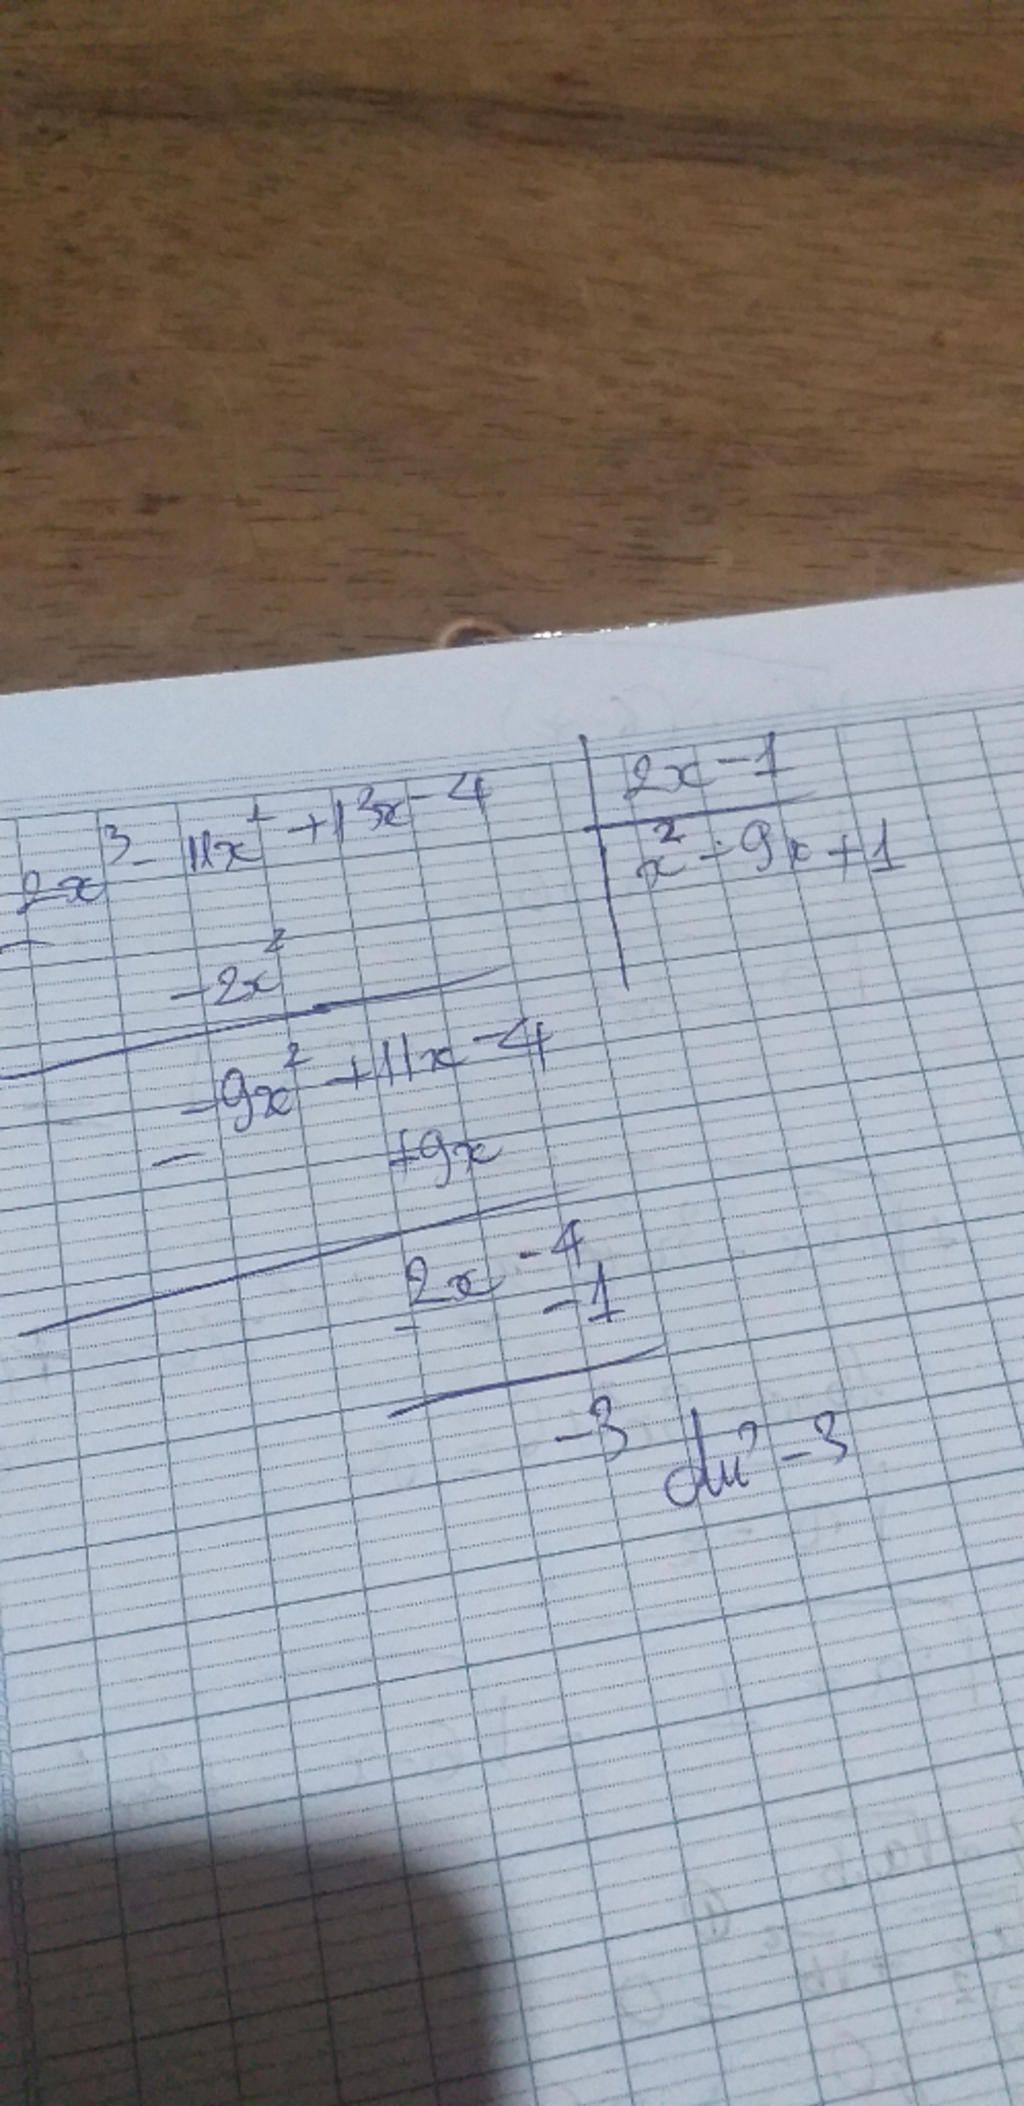 2x³ - 11x² + 13x - 4 | 2x - 1
x² - 9x + 1
-
-2x²
-9x² + 11x - 4
- +9x
2x - 4
- -1
-3 dư -3